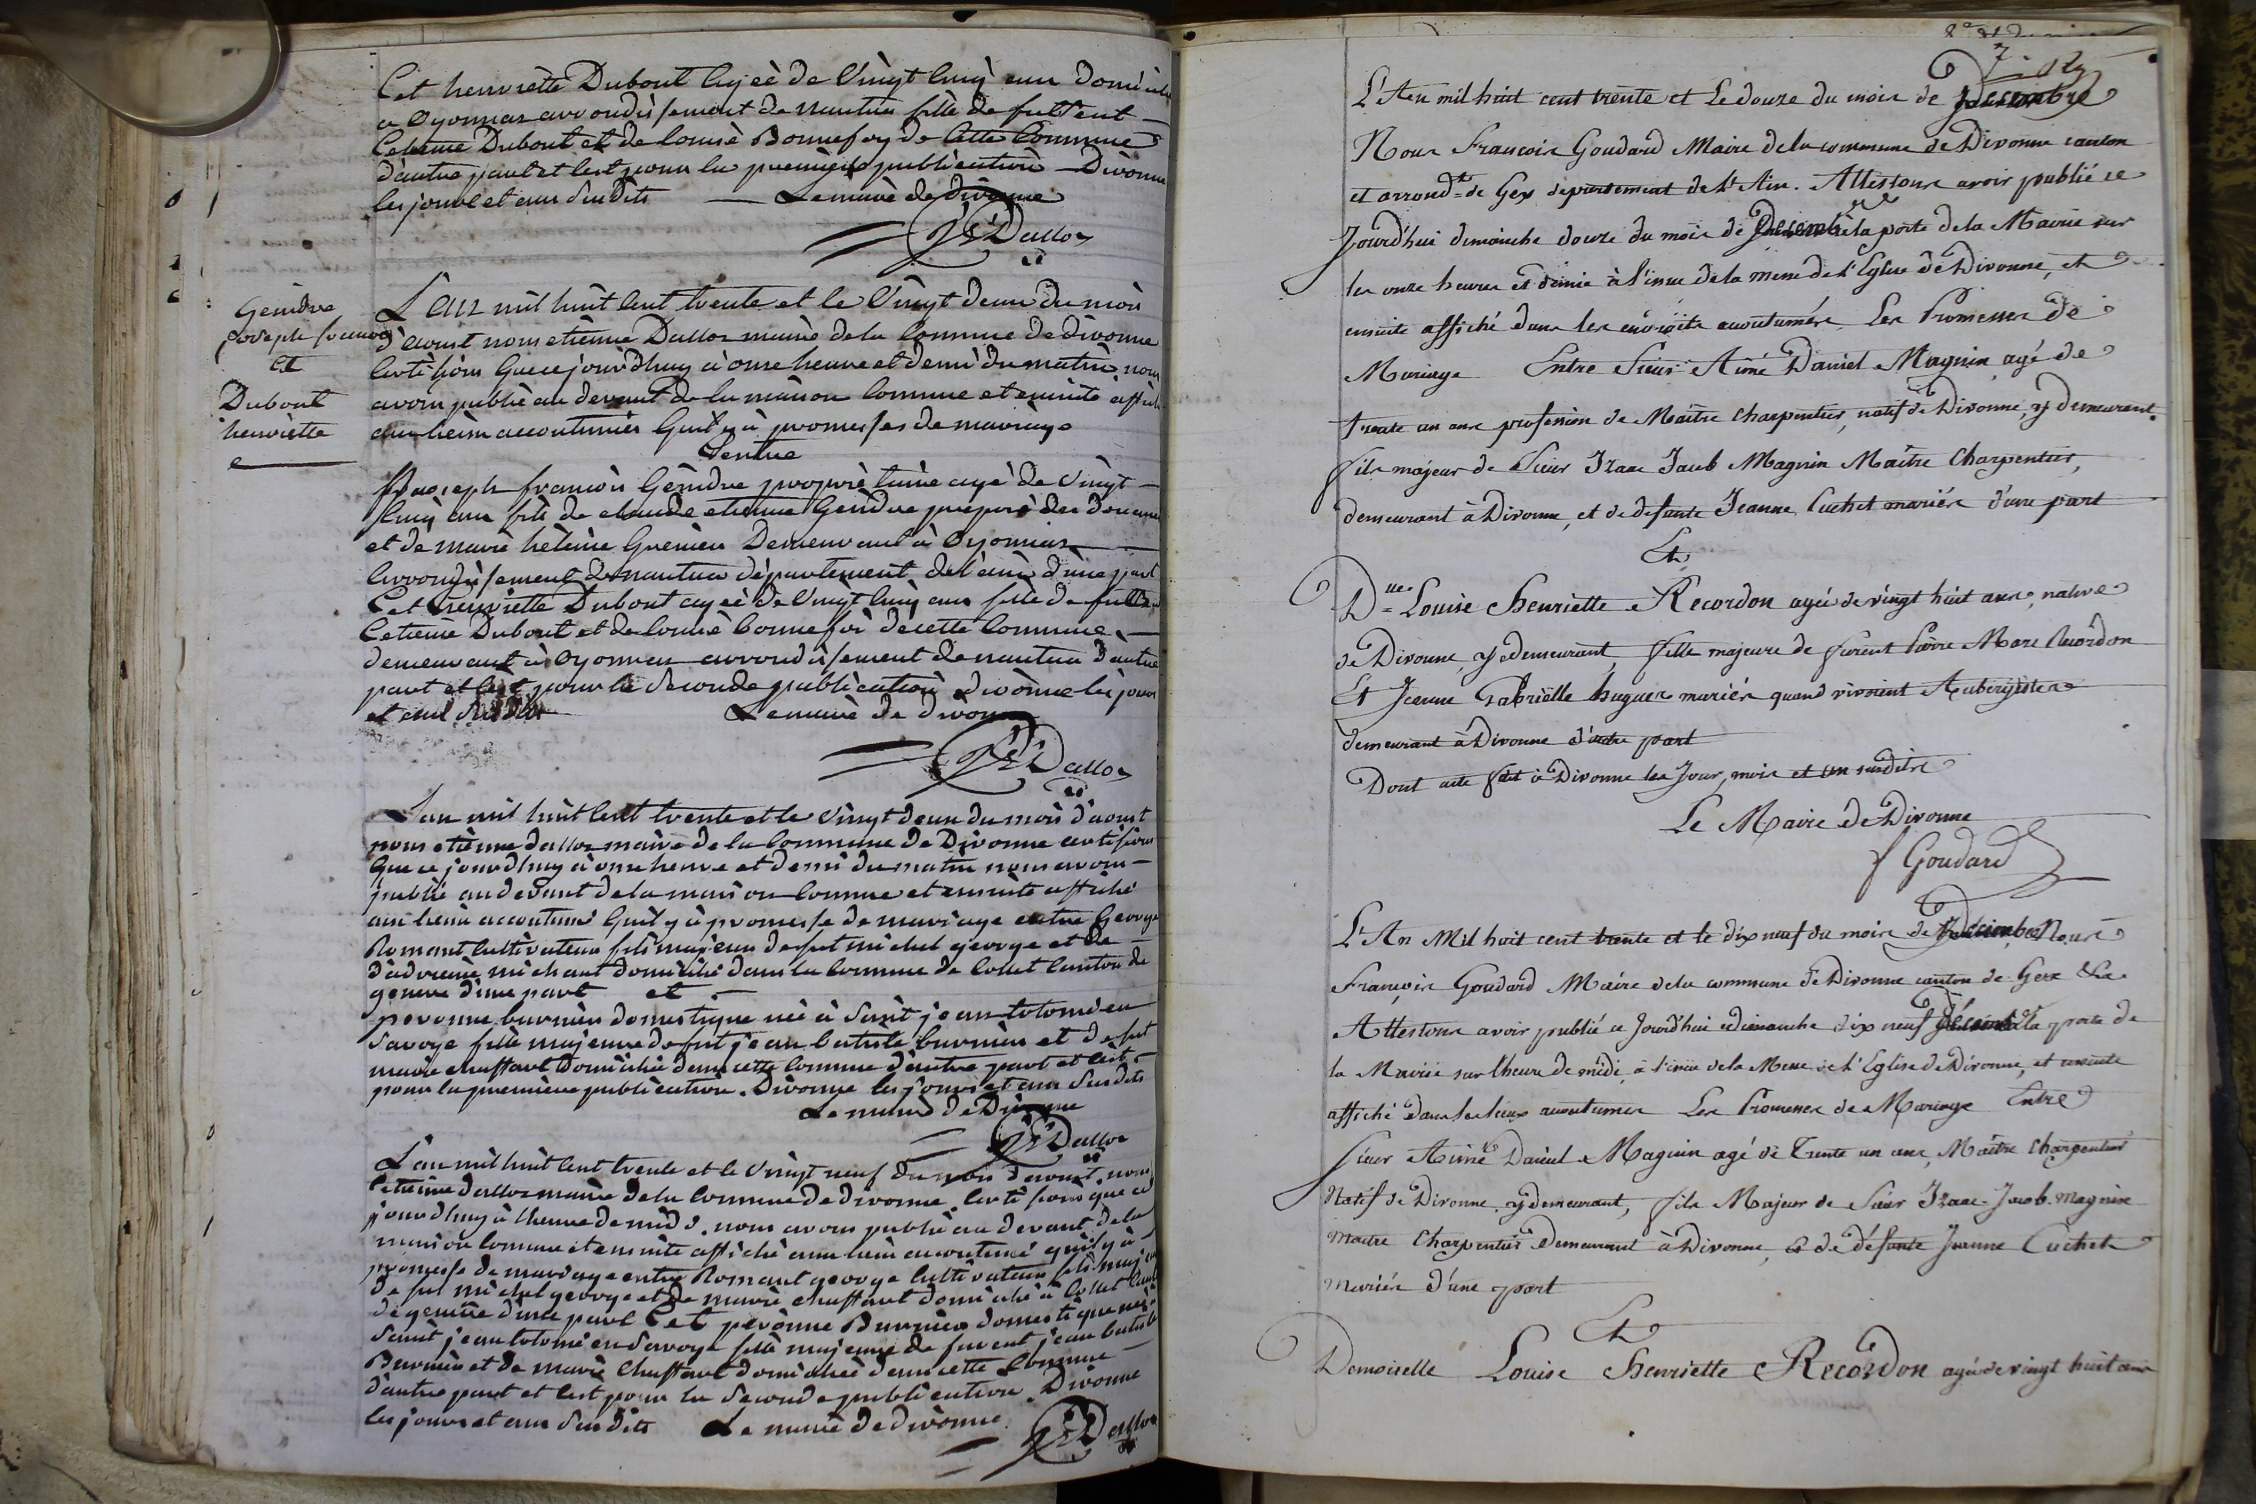 Et henriette Dubout Agée de Vingt Cinq ans domicilié
a Oyonnax arrondissement de nantua fille de fut Pent
Cetienne Dubout et de Louise Bonnefoy de Cette Commune
d'autre part et Cest pour la premiere publication Divonne
les jour et an Susdits Le maire de divonne
Dalloz
Gendre
joseph francois
et
Dubout
henriette
L'an mil huit Cent trente et le Vingt deux du mois
d'aoust nous etienne Dalloz maire de la Commune de divonne
Certifions que ce jourd'huy à onze heure et demi du matin nous
avons publié au devant de la maison Commune et ensuite affiché
aux lieux accoutumés quil y à promesses de mariage
d'entre
joseph francois Gendre propriétaire agé de Vingt
Cinq ans fils de claude etienne Gendre préposé des douanes
et de marie helaine Demeurant à Oyonnax
arrondissement de nantua département de l'ain d'une part
Et henriette Dubout agée de Vingt Cinq ans fille de
Cetienne Dubout et de Louise bonnefoi de cette Commune
demeurant à Oyonnax arrondissement de nantua d'autre
part et Cest pour la Seconde publication divonne les jour
et an Susdits Le maire de divonne
Dalloz
L'an mil huit Cent trente et le Vingt deux du mois d'aoust
nous etienne dalloz maire de la Commune de Divonne certifions
que ce jourdhuy à onze heure et demi du matin nous avons
publié au devant de la maison Commune et ensuite affiché
aux lieux accoutumé quil y à promesse de mariage entre George
Romant Cultivateur fils majeur de fut michel george et de
d'adrienne michaut domicilié dans la Commune de Collet Canton de
geneve d'une part et
peronne burnier domestique née à Saint jean tolomé en
Savoye fille majeure de fut jean batiste burnier et de fut
marie chuffart Domiciliée dans cette Commune d'autre part et Cest
pour la premiere publication. Divonne les jours et an Susdits
Le maire de Divonne
Dalloz
L'an mil huit Cent trente et le Vingt neuf du mois d'aoust, nous
etienne dalloz maire de la Commune de divonne. Certifions que ce
jourdhuy à lheure de midi. nous avons publié au devant de la
maison Commune et ensuite affiché aux lieux accoutumé quil y à
promesse de mariage entre Romant george Cultivateur fils majeur
de fut michel george et de marie chuffart domicilié à Collet Canton
de genève d'une part Et peronne Burnier domestique née à
Saint jean tolomé en Savoye fille majeure de furent jean batiste
Burnier et de marie Chuffart domiciliée dans cette Commune
d'autre part et Cest pour la Seconde publication Divonne
les jours et an Susdits Le maire de divonne
Dalloz
L'An mil huit cent trente et Le douze du mois de Décembre
Nous François Goudard Maire de la commune de Divonne canton
et arrondt de Gex departement de l'Ain. Attestons avoir publié ce
Jourd'hui dimanche douze du mois de Décembre à la porte de la Mairie sur
les onze heures et demie à l'issue de la messe de l'Eglise de Divonne, et
ensuite affiché dans les endroits accoutumés Les Promesses de
Mariage Entre Sieur Aimé Daniel Magnin agé de
trente un ans profession de Maître charpentier, natif de Divonne, y demeurant
fils majeur de Sieur Izaac Jacob Magnin Maître Charpentier,
demeurant à Divonne, et de defunte Jeanne Cuchet mariés d'une part
Et
Dlle Louise Henriette Recordon agée de vingt huit ans, native
de Divonne, y demeurant, fille majeure de furent Pierre Marc Recordon
Et Jeanne Gabrielle huguer mariés quand vivoient Aubergistes
demeurant à Divonne d'autre part
Dont acte fait à Divonne les Jour, mois et an susdits
Le Maire de Divonne
f Goudard
L'An Mil huit cent trente et le dix neuf du mois de Décembre Nous
François Goudard Maire de la commune de Divonne canton de Gex &a
Attestons avoir publié ce Jourd'hui dimanche dix neuf Décembre à la porte de
la Mairie sur l'heure de midi, à l'issue de la Messe de l'Eglise de Divonne, et ensuite
affiché dans les lieux accoutumés Les Promesses de Mariage Entre
Sieur Aimé Daniel Magnin agé de Trente un ans, Maître Charpentier
Natif de Divonne, y demeurant, fils Majeur de Sieur Izaac Jacob Magnin
Maitre Charpentier Demeurant à Divonne, & de défunte Jeanne Cuchet
mariés d'une part
Et
Demoiselle Louise Henriette Recordon agée de vingt huit ans